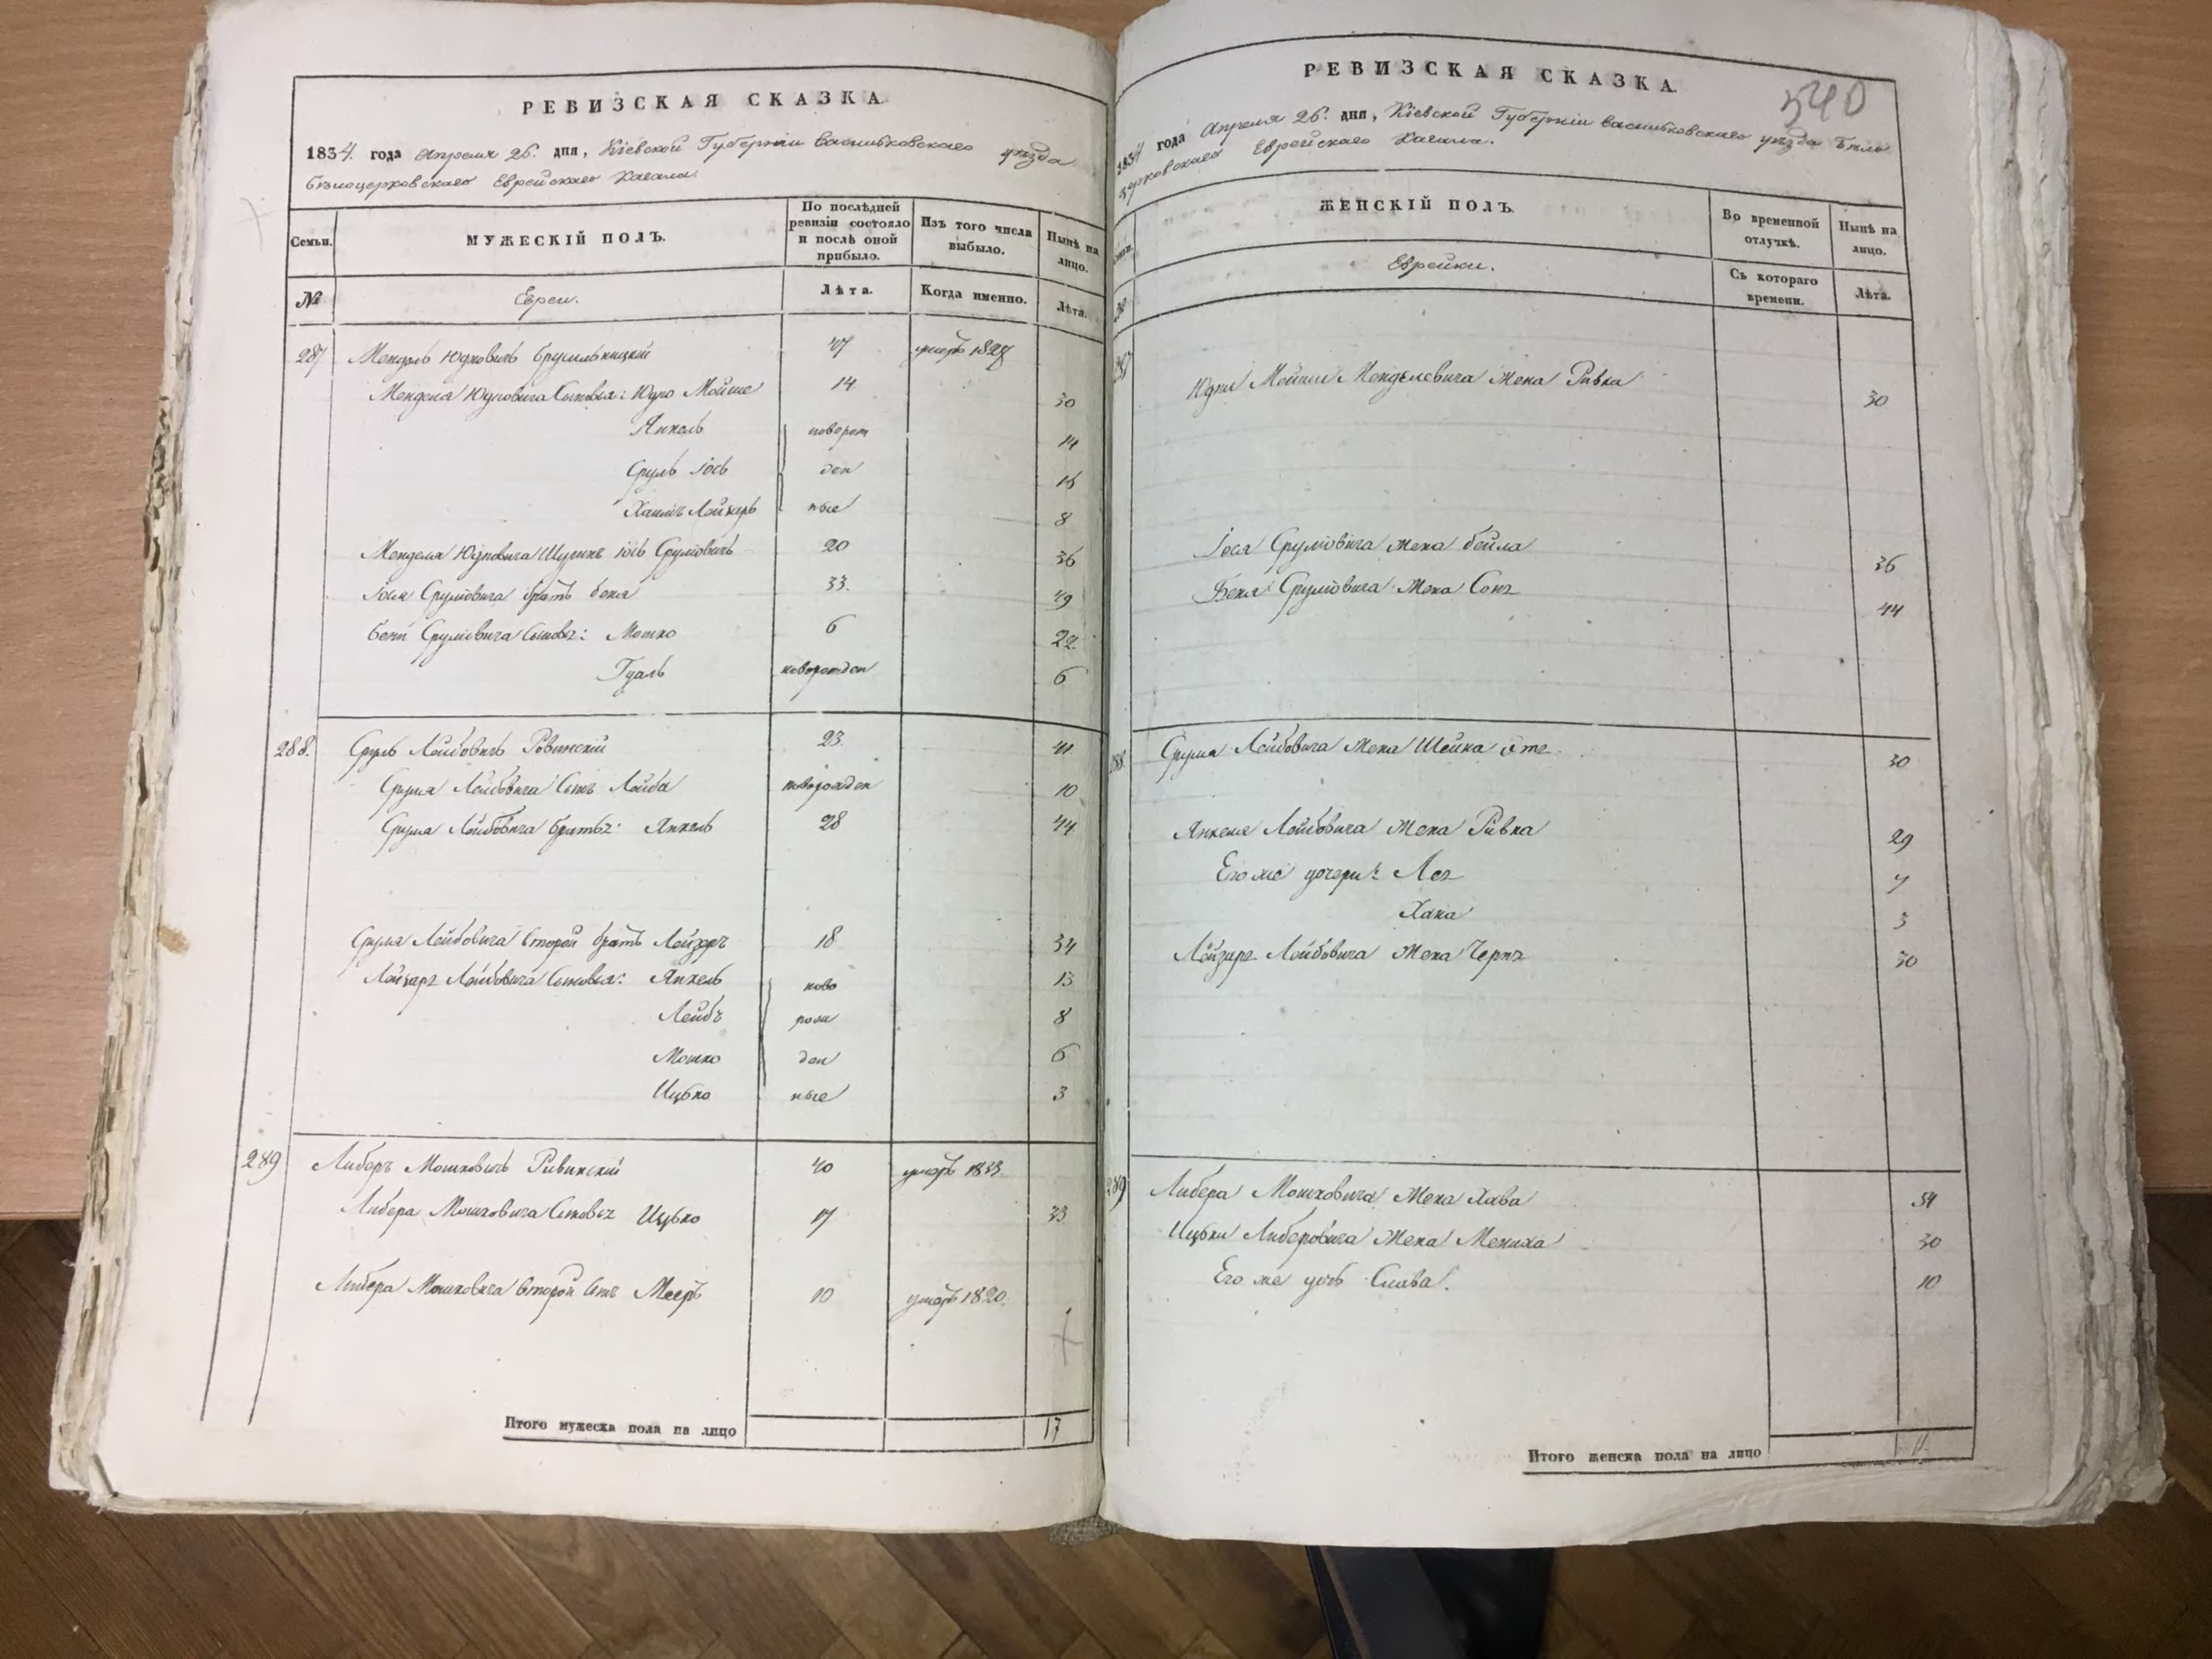 РЕВИЗСКАЯ СКАЗКА.
1834. года Апреля 26. дня, Кіевской Губерніи Васильковскаго уѣзда
Бѣлоцерковскаго Еврейскаго Кагала.
Семьи.
МУЖЕСКІЙ ПОЛЪ.
По послѣдней ревизіи состояло и послѣ оной прибыло.
Изъ того числа выбыло.
Нынѣ на лицо.
№
Евреи.
Лѣта.
Когда именно.
Лѣта.
287 Мендель Юдковичъ 47 умеръ 1827
Менделя Юдковича Сыновья: Юдко Мойше 14 30
Янкель новорож 14
Сруль Іось ден 16
Хаимъ Лейзеръ ные 8
Менделя Юдковича Шуринъ Іось Срулювичъ 20 36
Іося Срулювича братъ Беня 33. 49
Бени Срулювича Сыновья: Мошко 6 22.
новорожден 6
288. Сруль Лейбовичъ Ровинскій 23. 41.
Сруля Лейбовича Сынъ Лейба новорожден 10
Сруля Лейбовича братья: Янкель 28 44
Сруля Лейбовича Второй братъ Лейзоръ 18 34
Лейзора Лейбовича Сыновья: Янкель ново 13
Лейбъ рож 8
Мошко ден 6
Ицько ные 3
289 Либеръ Мошковичъ Ривинскій 40 умеръ 1833.
Либера Мошковича Сыновья Ицько 17 33
Либера Мошковича Второй Сынъ Мееръ 10 умеръ 1820.
Итого мужеска пола на лицо 17
РЕВИЗСКАЯ СКАЗКА.
540
1834 года Апреля 26. дня, Кіевской Губерніи Васильковскаго уѣзда Бѣло
церковскаго Еврейскаго Кагала.
ЖЕНСКІЙ ПОЛЪ.
Во временной отлучкѣ.
Нынѣ на лицо.
Еврейки.
Съ котораго времени.
Лѣта.
287 Юдки Мойши Менделевича жена Ривка 30
Іося Срулювича жена Бейла 36
Беня Срулювича жена Соня 44
288. Сруля Лейбовича жена Шейна 30
Янкеля Лейбовича жена Ривка 29
Его же дочери: Лея 7
Хана 3
Лейзора Лейбовича жена Черня 30
289 Либера Мошковича жена Хава 54
Ицьки Либеровича жена Мениха 30
Его же дочь Слава. 10
Итого женска пола на лицо 11